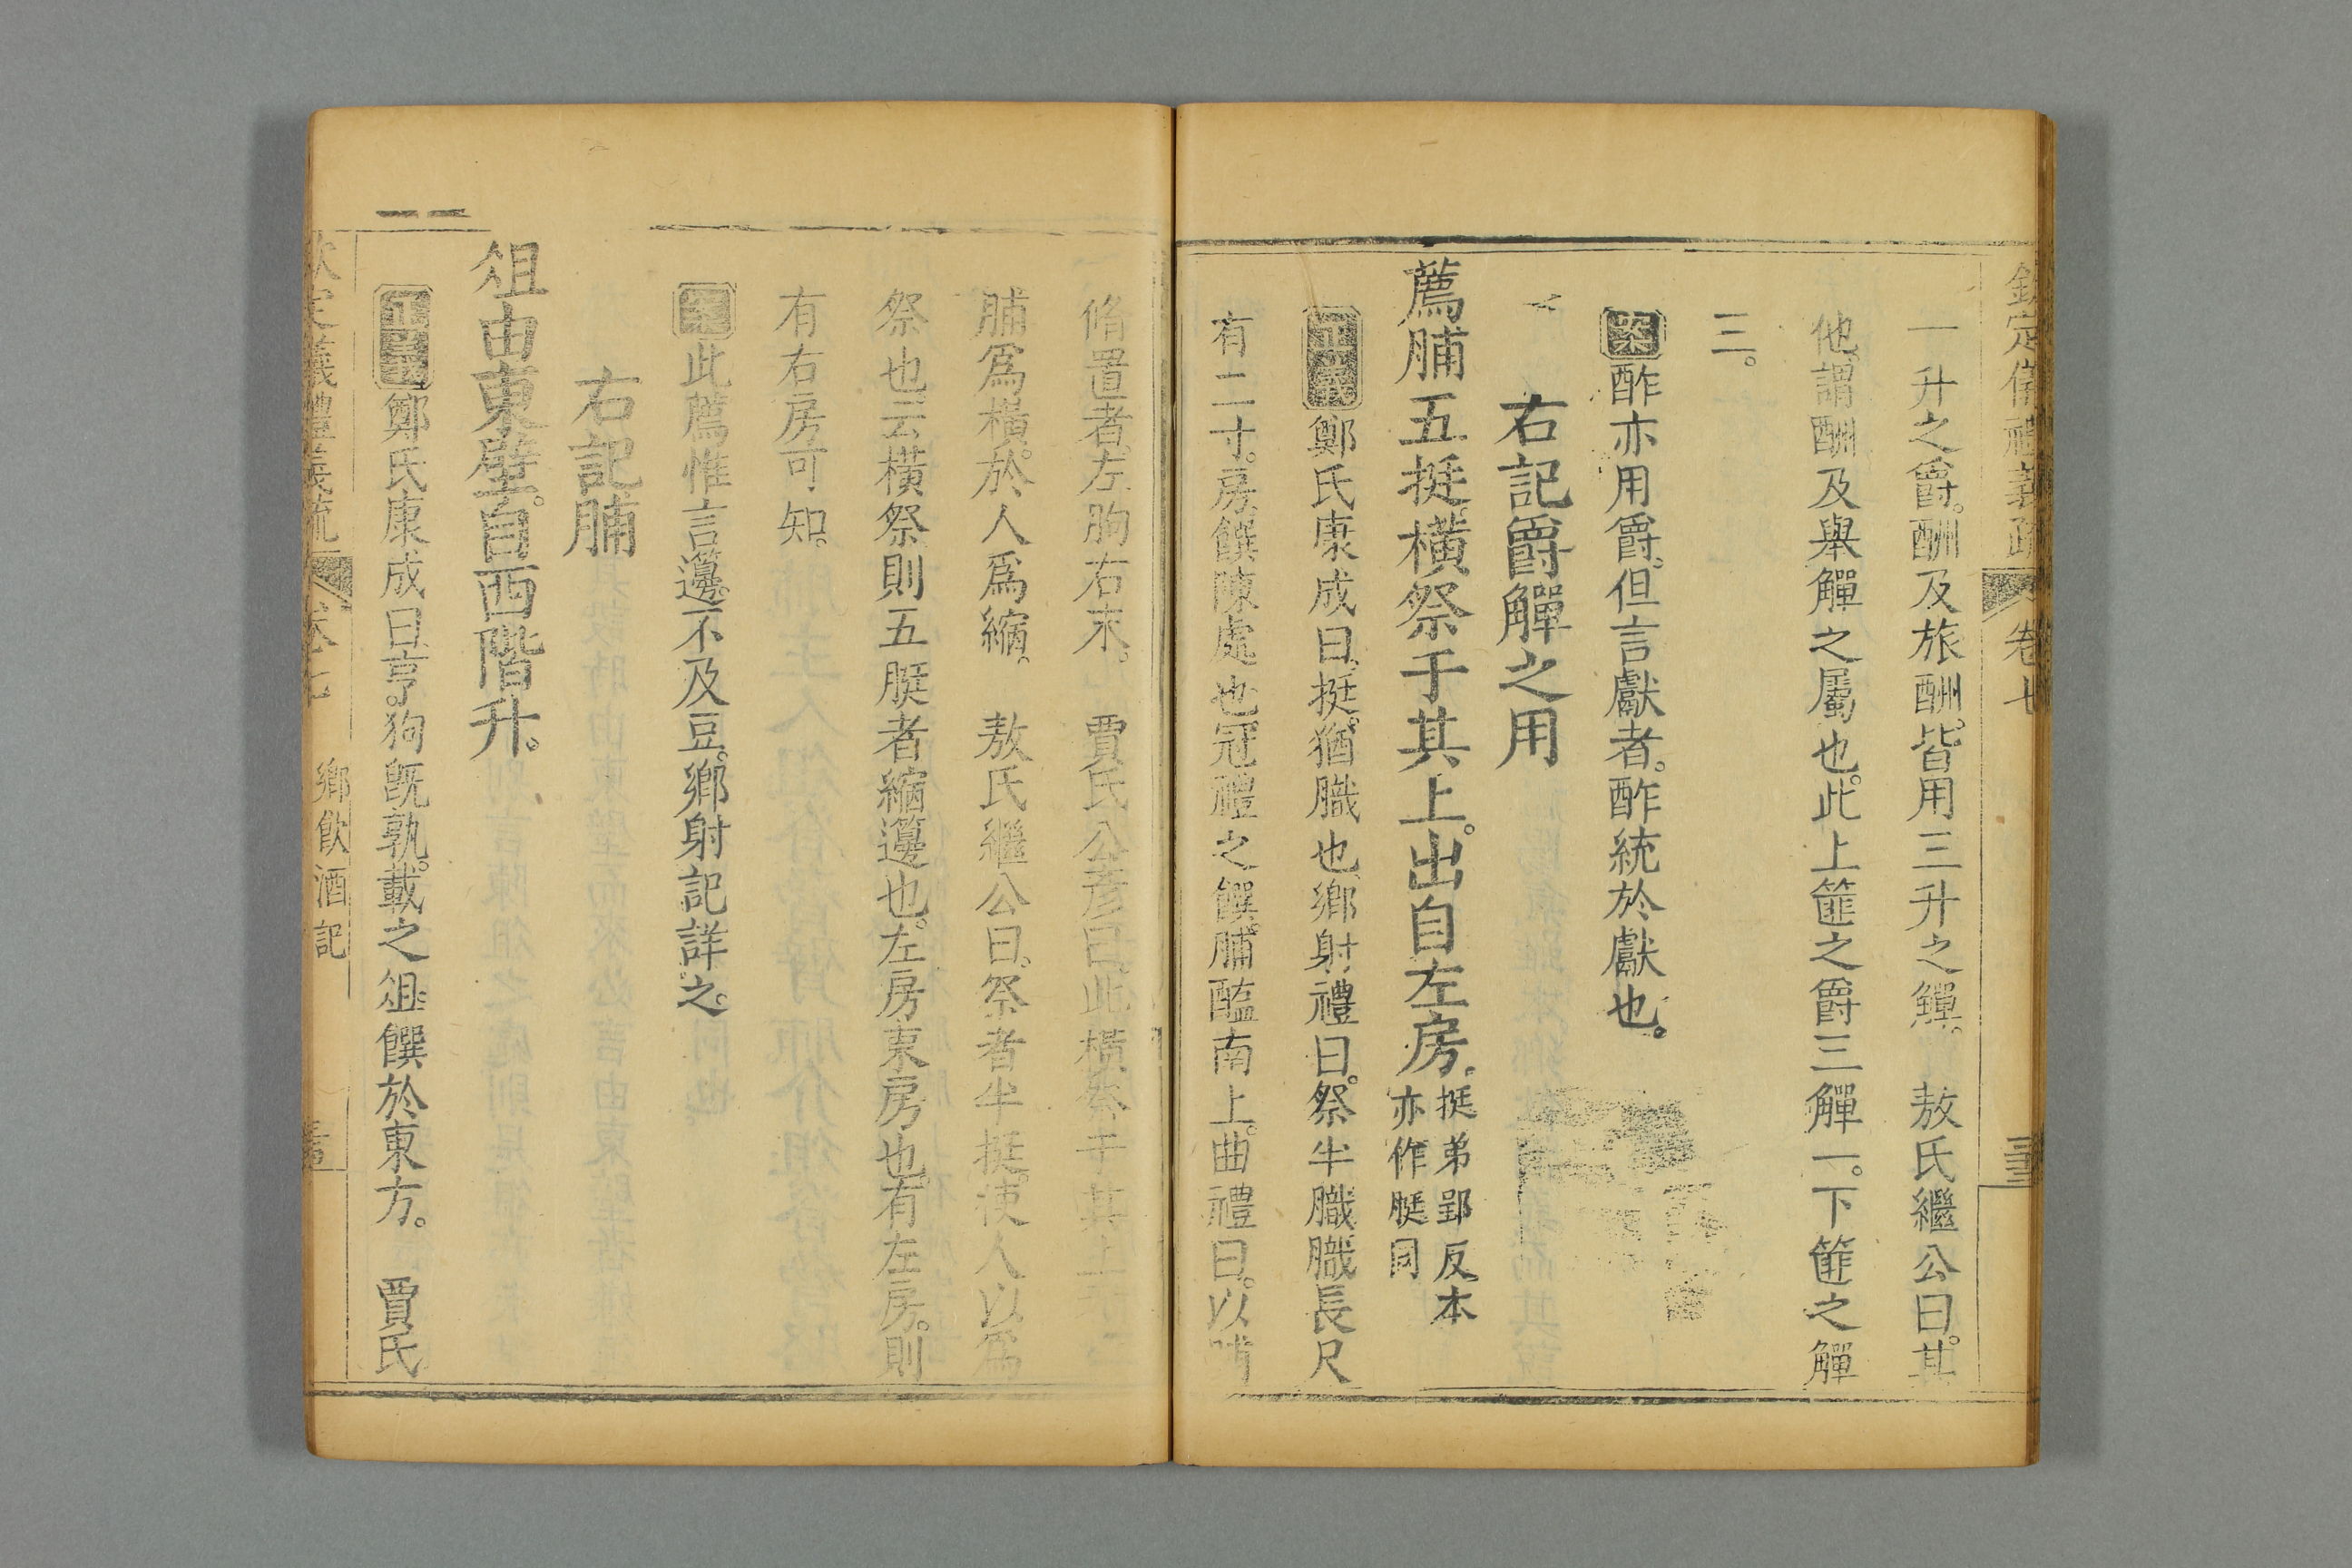 欽定儀禮義疏 卷七
一升之爵。酬及旅酬。皆用三升之觶。 敖氏繼公曰。其
他。謂酬及舉觶之屬也。此上篚之爵三觶一。下篚之觶
三。
案酢亦用爵。但言獻者。酢統於獻也。
右記爵觶之用
薦脯五挺。橫祭于其上。出自左房。挺弟郢反本
亦作脡同
正義鄭氏康成曰。挺。猶膱也。鄉射禮曰。祭半膱膱長尺
有二寸。房。饌陳處也。冠禮之饌。脯醢南上。曲禮曰。以脯
脩置者。左朐右末。 賈氏公彥曰。此橫祭于其上
脯爲橫。於人爲縮。 敖氏繼公曰。祭者半挺。使人以爲
祭也。云橫祭則五脡者縮籩也。左房東房也。有左房。則
有右房可知。
案此薦惟言籩。不及豆。鄉射記詳之。
右記脯
俎由東壁。自西階升。
正義鄭氏康成曰。亨。狗旣孰。載之俎。饌於東方。 賈氏
欽定儀禮義疏 卷七 鄉飲酒記